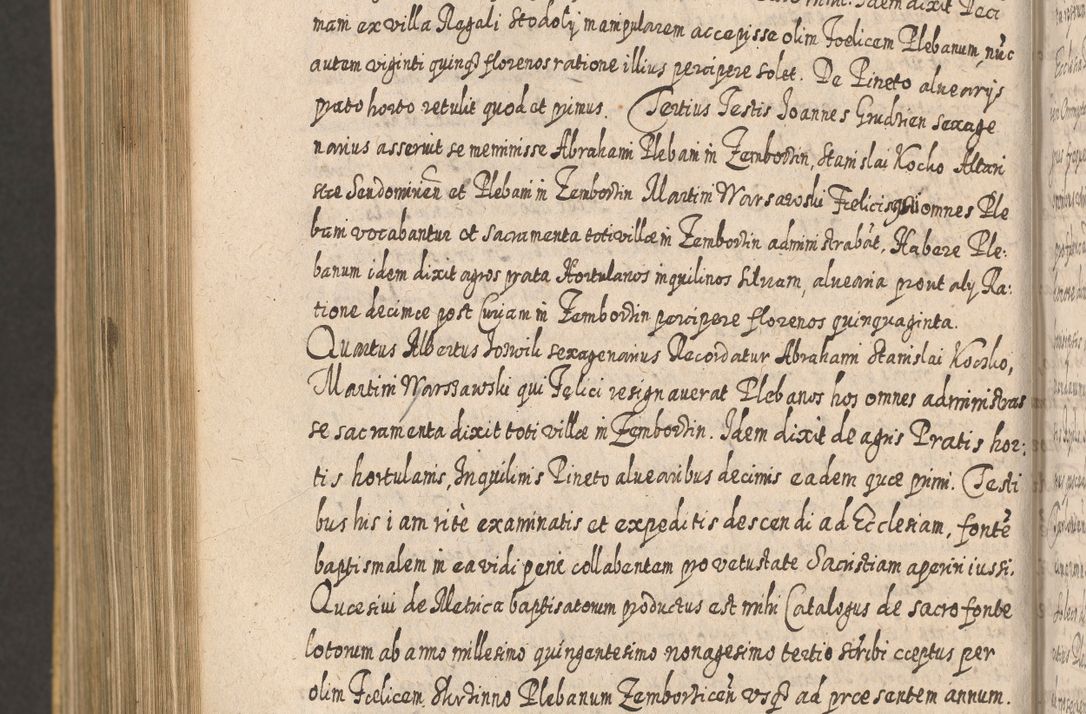 mam ex villa Regali Stodoly manipularem accepisse olim Foelicem Plebanum, nuc
autem viginti quinq florenos ratione illius percipere solet. De Pineto alvearijs
prato horto retulit quod et primus. Tertius Testis Joannes Grudzien sexage
narius asseruit se meminisse Abrahami Plebani in Zemborzin, Stanislai Kocko Altari
stae Sendomirien et Plebani in Zemborzin Martini Warsawski Faelicis qui omnes Ple
bani vocabantur et sacramenta toti villae in Zemborzin administrabat, Habere Ple:
banum idem dixit agros prata Hortulanos inquilinos silvam, alvearia prout alij Ra:
tione decimae post Curiam in Zemborzin percipere florenos quinquaginta.
Quartus Albertus sexagenarius Recordatur Abrahami Stanislai Koczko,
Martini Warszawski qui Felici resignaverat Plebanos hos omnes administras
se sacramenta dixit toti villae in Zemborzin. Idem dixit de agris Pratis hor:
tis hortulanis, Inquilinis Pineto alvearibus decimis eadem quae primi. Testi
bus his iam ritè examinatis et expeditis descendi ad Ecclesiam, fonte
baptismalem in ea vidi pene collabentem pro vetustate Sacristiam aperiri iussi.
Quaesivi de Metrica baptisatorum productus est mihi Catalogus de sacro fonte
lotorum ab anno millesimo quingentesimo nonagesimo tertio scribi cceptus per
olim Faelicem Plebanum Zemborzicen usq ad praesentem annum.